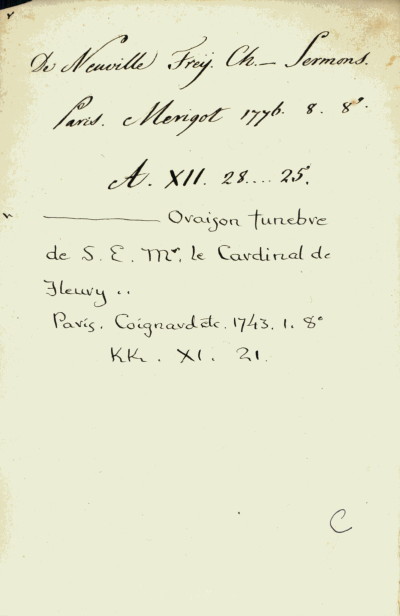 De Neuville Freÿ. Ch. — Sermons.
Paris. Merigot 1776. 8. 8°.
A. XII. 28.... 25.
——— Oraison funebre
de S. E. Mr. le Cardinal de
Fleury ..
Paris. Coignard etc. 1743. 1. 8°
KK. XI. 21.
C